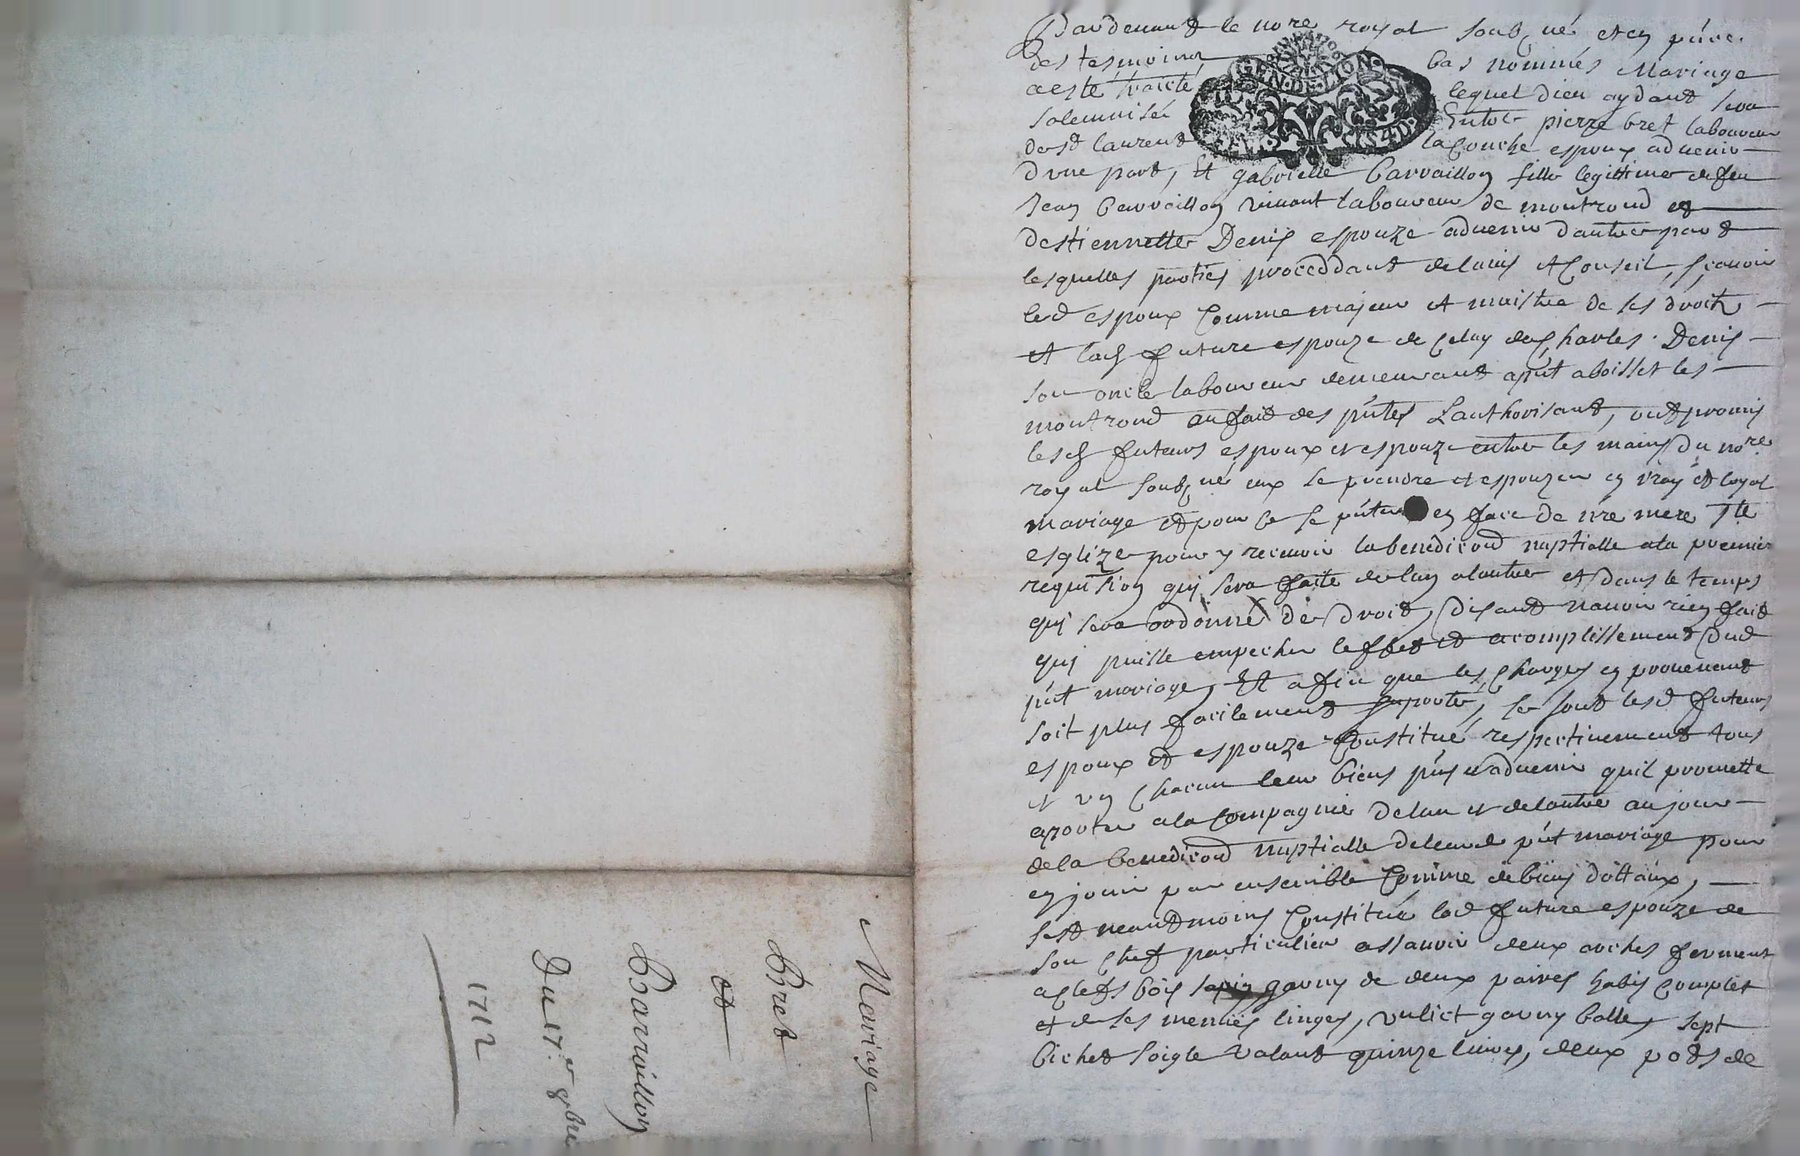 Pardevant le no.re royal soubz.né et en p.nce
des tesmoins bas nommés Mariage
a esté traicté lequel dieu aydant sera
solemnisé Entre pierre bret laboureur
de s.t laurent la Conche espoux advenir
d'une part, Et gabrielle barraillon fille legittime de feu
Jean barraillon vivant laboureur de montrond et
destiennette Denis espouze advenir d'autre part
lesquelles parties proceddant de l'avis et Conseil, sçavoir
led espoux Comme majeur et maistre de ses droits
et lad future espouze de Celuy de Charles Denis
son oncle laboureur demeurant a p.nt a boisset les
montrond au fait des p.ntes L'authorisant, ont promis
lesd futurs espoux et espouze entre les mains du no.re
royal soubz.né eux se prendre et espouzer en vray et loyal
mariage et pour ce se p.nter en face de n.re mere s.te
esglize pour y recevoir la benediction nuptialle a la premiere
requision qui sera faite de l'un a l'autre et dans le temps
qui sera ordonné de droit, disant n'avoir rien fait
qui puisse empecher l'effet et acomplissement dud
p.nt mariage, Et afin que les Charges en provenant
soit plus facilement suporté, se sont lesd futurs
espoux et espouze Constitué respectivement tous
et un Chacun leur biens p.ns et advenir qu'il promette
aporter a la Compagnie de l'un et de l'autre au jour
de la benediction nuptialle de leurd p.nt mariage pour
en jouir par ensemble Comme de biens dottaux,
s'est neantmoins Constitué lad future espouze de
son Chef particulier assavoir deux arches fermant
a Clefs bois sapin garny de deux paires habis Complet
et de ses menues linges, un lict garny balle, sept
bichet soigle valant quinze livres, deux pots de
GEN. DE LION.
Mariage
Bret
et
Barraillon
Du 17.e 9bre
1712